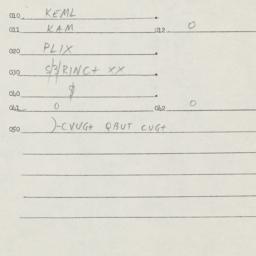 010. KEML
011 KAM 012. 0
020 PLIX
030 S/2/RINC+ XX
040 $
041. 0 042 0
050 )-CVUG+ QBUT CUG+